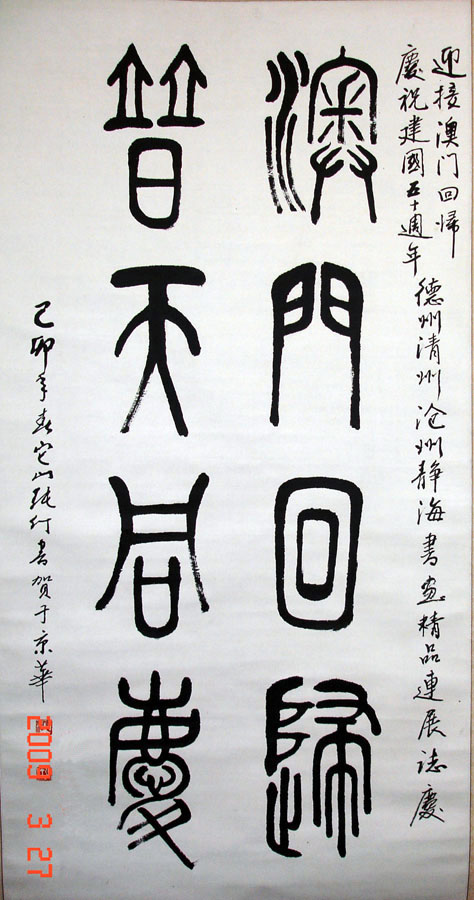 迎接澳门回歸
慶祝建國五十週年
德州清州沧州静海書画精品連展誌慶
澳門回歸
普天同慶
己卯年春它山张仃書賀于京華
2009 3 27